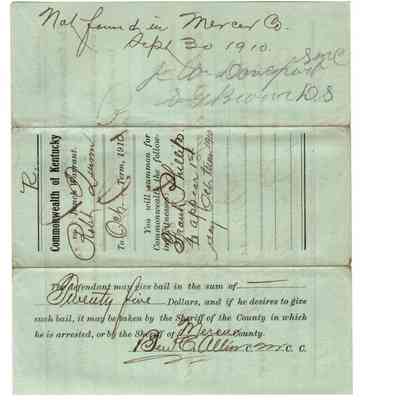 Not found in Mercer Co.
Sept 30 1910.
J. W. Davenport SMC
S G Brown D.S
Commonwealth of Kentucky
vs. Bench Warrant.
Robt Dunn
To Oct. Term, 1910
You will summon for
Commonwealth the follow-
ing witnesses:
Frank Phillips
to appear 1st
day Oct term 1910
The defendant may give bail in the sum of
Twenty five Dollars, and if he desires to give
such bail, it may be taken by the Sheriff of the County in which
he is arrested, or by the Sheriff of Mercer County.
Ben C Allin C. M. C. C.